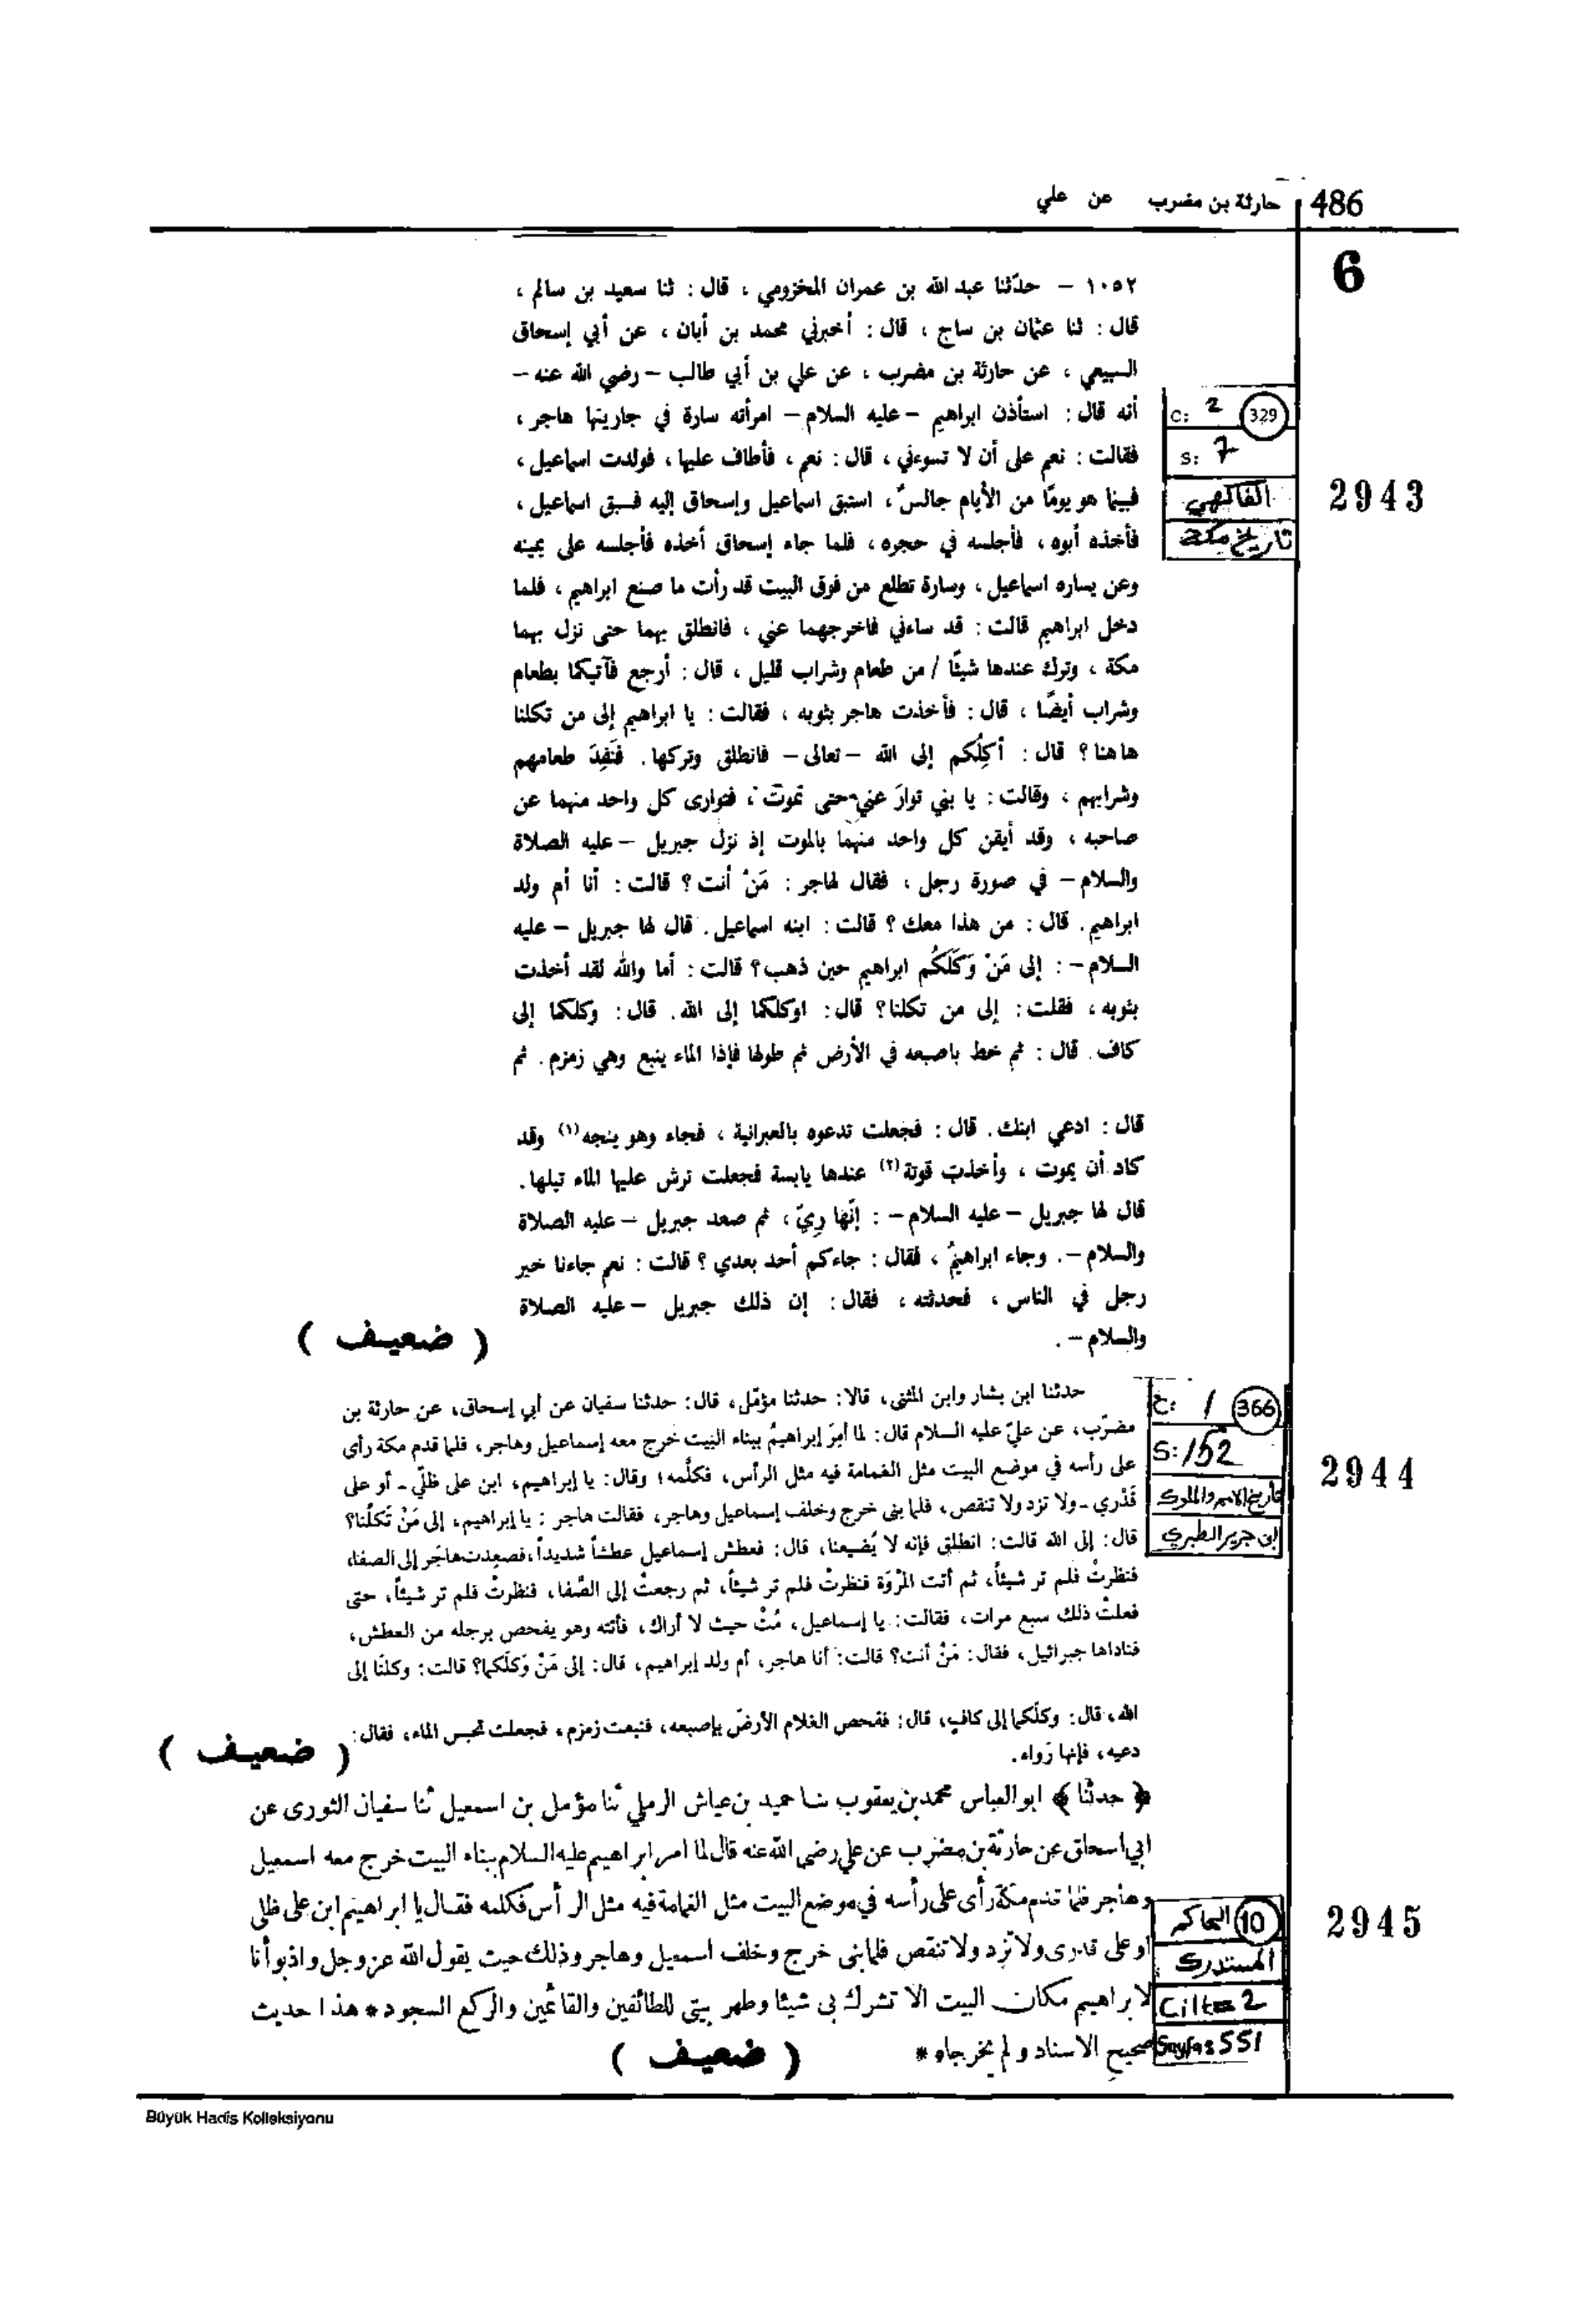 486 حارثة بن مضرب عن علي
6
١٠٥٢ – حدّثنا عبد الله بن عمران المخزومي ، قال : ثنا سعيد بن سالم ،
قال : ثنا عثمان بن ساج ، قال : أخبرني محمد بن أبان ، عن أبي إسحاق
السبيعي ، عن حارثة بن مضرب ، عن علي بن أبي طالب – رضي الله عنه –
أنه قال : استأذن ابراهيم – عليه السلام – امرأته سارة في جاريتها هاجر ،
فقالت : نعم على أن لا تسوءني ، قال : نعم ، فأطاف عليها ، فولدت اسماعيل ،
فبينما هو يومًا من الأيام جالسٌ ، استبق اسماعيل وإسحاق إليه فسبق اسماعيل ،
فأخذه أبوه ، فأجلسه في حجره ، فلما جاء إسحاق أخذه فأجلسه على يمينه
وعن يساره اسماعيل ، وسارة تطلع من فوق البيت قد رأت ما صنع ابراهيم ، فلما
دخل ابراهيم قالت : قد ساءني فاخرجهما عني ، فانطلق بهما حتى نزل بهما
مكة ، وترك عندها شيئًا / من طعام وشراب قليل ، قال : أرجع فآتيكما بطعام
وشراب أيضًا ، قال : فأخذت هاجر بثوبه ، فقالت : يا ابراهيم إلى من تكلنا
هاهنا ؟ قال : أكِلُكم إلى الله – تعالى – فانطلق وتركها . فَنَفِدَ طعامهم
وشرابهم ، وقالت : يا بني توارَ عني حتى تموت ، فتوارى كل واحد منهما عن
صاحبه ، وقد أيقن كل واحد منهما بالموت إذ نزل جبريل – عليه الصلاة
والسلام – في صورة رجل ، فقال لهاجر : مَنْ أنت ؟ قالت : أنا أم ولد
ابراهيم . قال : من هذا معك ؟ قالت : ابنه اسماعيل . قال لها جبريل – عليه
السلام – : إلى مَنْ وَكَلَكُم ابراهيم حين ذهب ؟ قالت : أما والله لقد أخذت
بثوبه ، فقلت : إلى من تكلنا ؟ قال : اوكلكما إلى الله . قال : وكلكما إلى
كاف . قال : ثم خط باصبعه في الأرض ثم طولها فإذا الماء ينبع وهي زمزم . ثم
قال : ادعي ابنك . قال : فجعلت تدعوه بالعبرانية ، فجاء وهو ينجه (١) وقد
كاد أن يموت ، وأخذت قوتة (٢) عندها يابسة فجعلت ترش عليها الماء تبلها .
قال لها جبريل – عليه السلام – : إنّها رِيّ ، ثم صعد جبريل – عليه الصلاة
والسلام – . وجاء ابراهيمُ ، فقال : جاءكم أحد بعدي ؟ قالت : نعم جاءنا خير
رجل في الناس ، فحدثته ، فقال : إن ذلك جبريل – عليه الصلاة
والسلام – .
( ضعيف )
C: 2 329
S: 7
الفاكهي
تاريخ مكة
2943
حدثنا ابن بشار وابن المثنى، قالا: حدثنا مؤمّل، قال: حدثنا سفيان عن أبي إسحاق، عن حارثة بن
مضرّب، عن عليّ عليه السلام قال: لما أُمِرَ إبراهيمُ ببناء البيت خرج معه إسماعيل وهاجر، فلما قدم مكة رأى
على رأسه في موضع البيت مثل الغمامة فيه مثل الرأس، فكلّمه؛ وقال: يا إبراهيم، ابن على ظلّي ـ أو على
قَدْري ـ ولا تزد ولا تنقص، فلما بنى خرج وخلف إسماعيل وهاجر، فقالت هاجر : يا إبراهيم، إلى مَنْ تَكلُنا؟
قال: إلى الله قالت: انطلق فإنه لا يُضيعنا، قال: فعطش إسماعيل عطشاً شديداً، فصعدت هاجَر إلى الصفا،
فنظرتْ فلم تر شيئاً، ثم أتت المرْوَة فنظرتْ فلم تر شيئاً، ثم رجعتْ إلى الصَّفا، فنظرتْ فلم تر شيئاً، حتى
فعلتْ ذلك سبع مرات، فقالت: يا إسماعيل، مُتْ حيث لا أراك، فأتته وهو يفحص برجله من العطش،
فناداها جبرائيل، فقال: مَنْ أنت؟ قالت: أنا هاجر، أم ولد إبراهيم، قال: إلى مَنْ وَكَلَكما؟ قالت: وكلنَا إلى
الله، قال: وكلَكما إلى كافٍ، قال: ففحص الغلام الأرضَ بإصبعه، فنبعت زمزم، فجعلت تحبس الماء، فقال:
دعيه، فإنها رَواء.
( ضعيف )
C: 1 366
S: 152
تاريخ الامم والملوك
ابن جرير الطبري
2944
﴿ حدثنا ﴾ ابو العباس محمد بن يعقوب ثنا حميد بن عياش الرملي ثنا مؤمل بن اسمعيل ثنا سفيان الثورى عن
ابي اسحاق عن حارثة بن مضرب عن علي رضى الله عنه قال لما امر ابراهيم عليه السلام ببناء البيت خرج معه اسمعيل
وهاجر فلما قدم مكة رأى على رأسه في موضع البيت مثل الغمامة فيه مثل الرأس فكلمه فقال يا ابراهيم ابن على ظلى
او على قدرى ولا تزد ولا تنقص فلما بنى خرج وخلف اسمعيل وهاجر وذلك حيث يقول الله عزوجل واذ بوأنا
لابراهيم مكان البيت الا تشرك بى شيئا وطهر بيتى للطائفين والقائمين والركع السجود * هذا حديث
صحيح الاسناد ولم يخرجاه *
( ضعيف )
10 الحاكم
المستدرك
Cilt= 2
Sayfa: 551
2945
Büyük Hadîs Kolleksiyonu